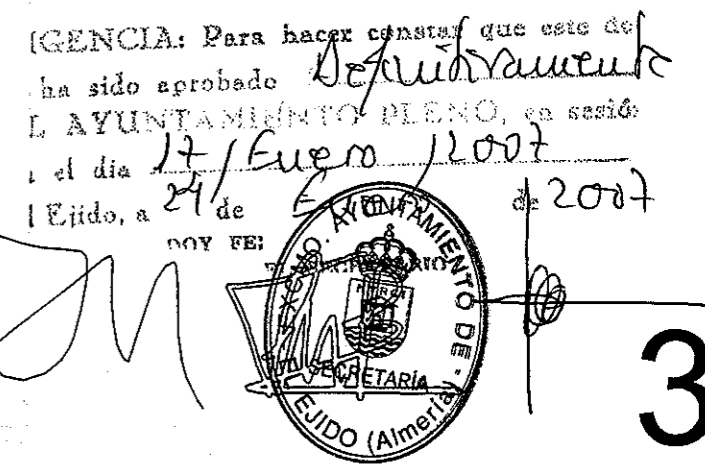 IGENCIA: Para hacer constar que este do
ha sido aprobado Definitivamente
L AYUNTAMIENTO PLENO, en sesió
el día 17/Enero/2007
l Ejido, a 24 de Enero de 2007
DOY FE:
EL SECRETARIO
EXCMO. AYUNTAMIENTO DE
SECRETARÍA
EJIDO (Almería)
3